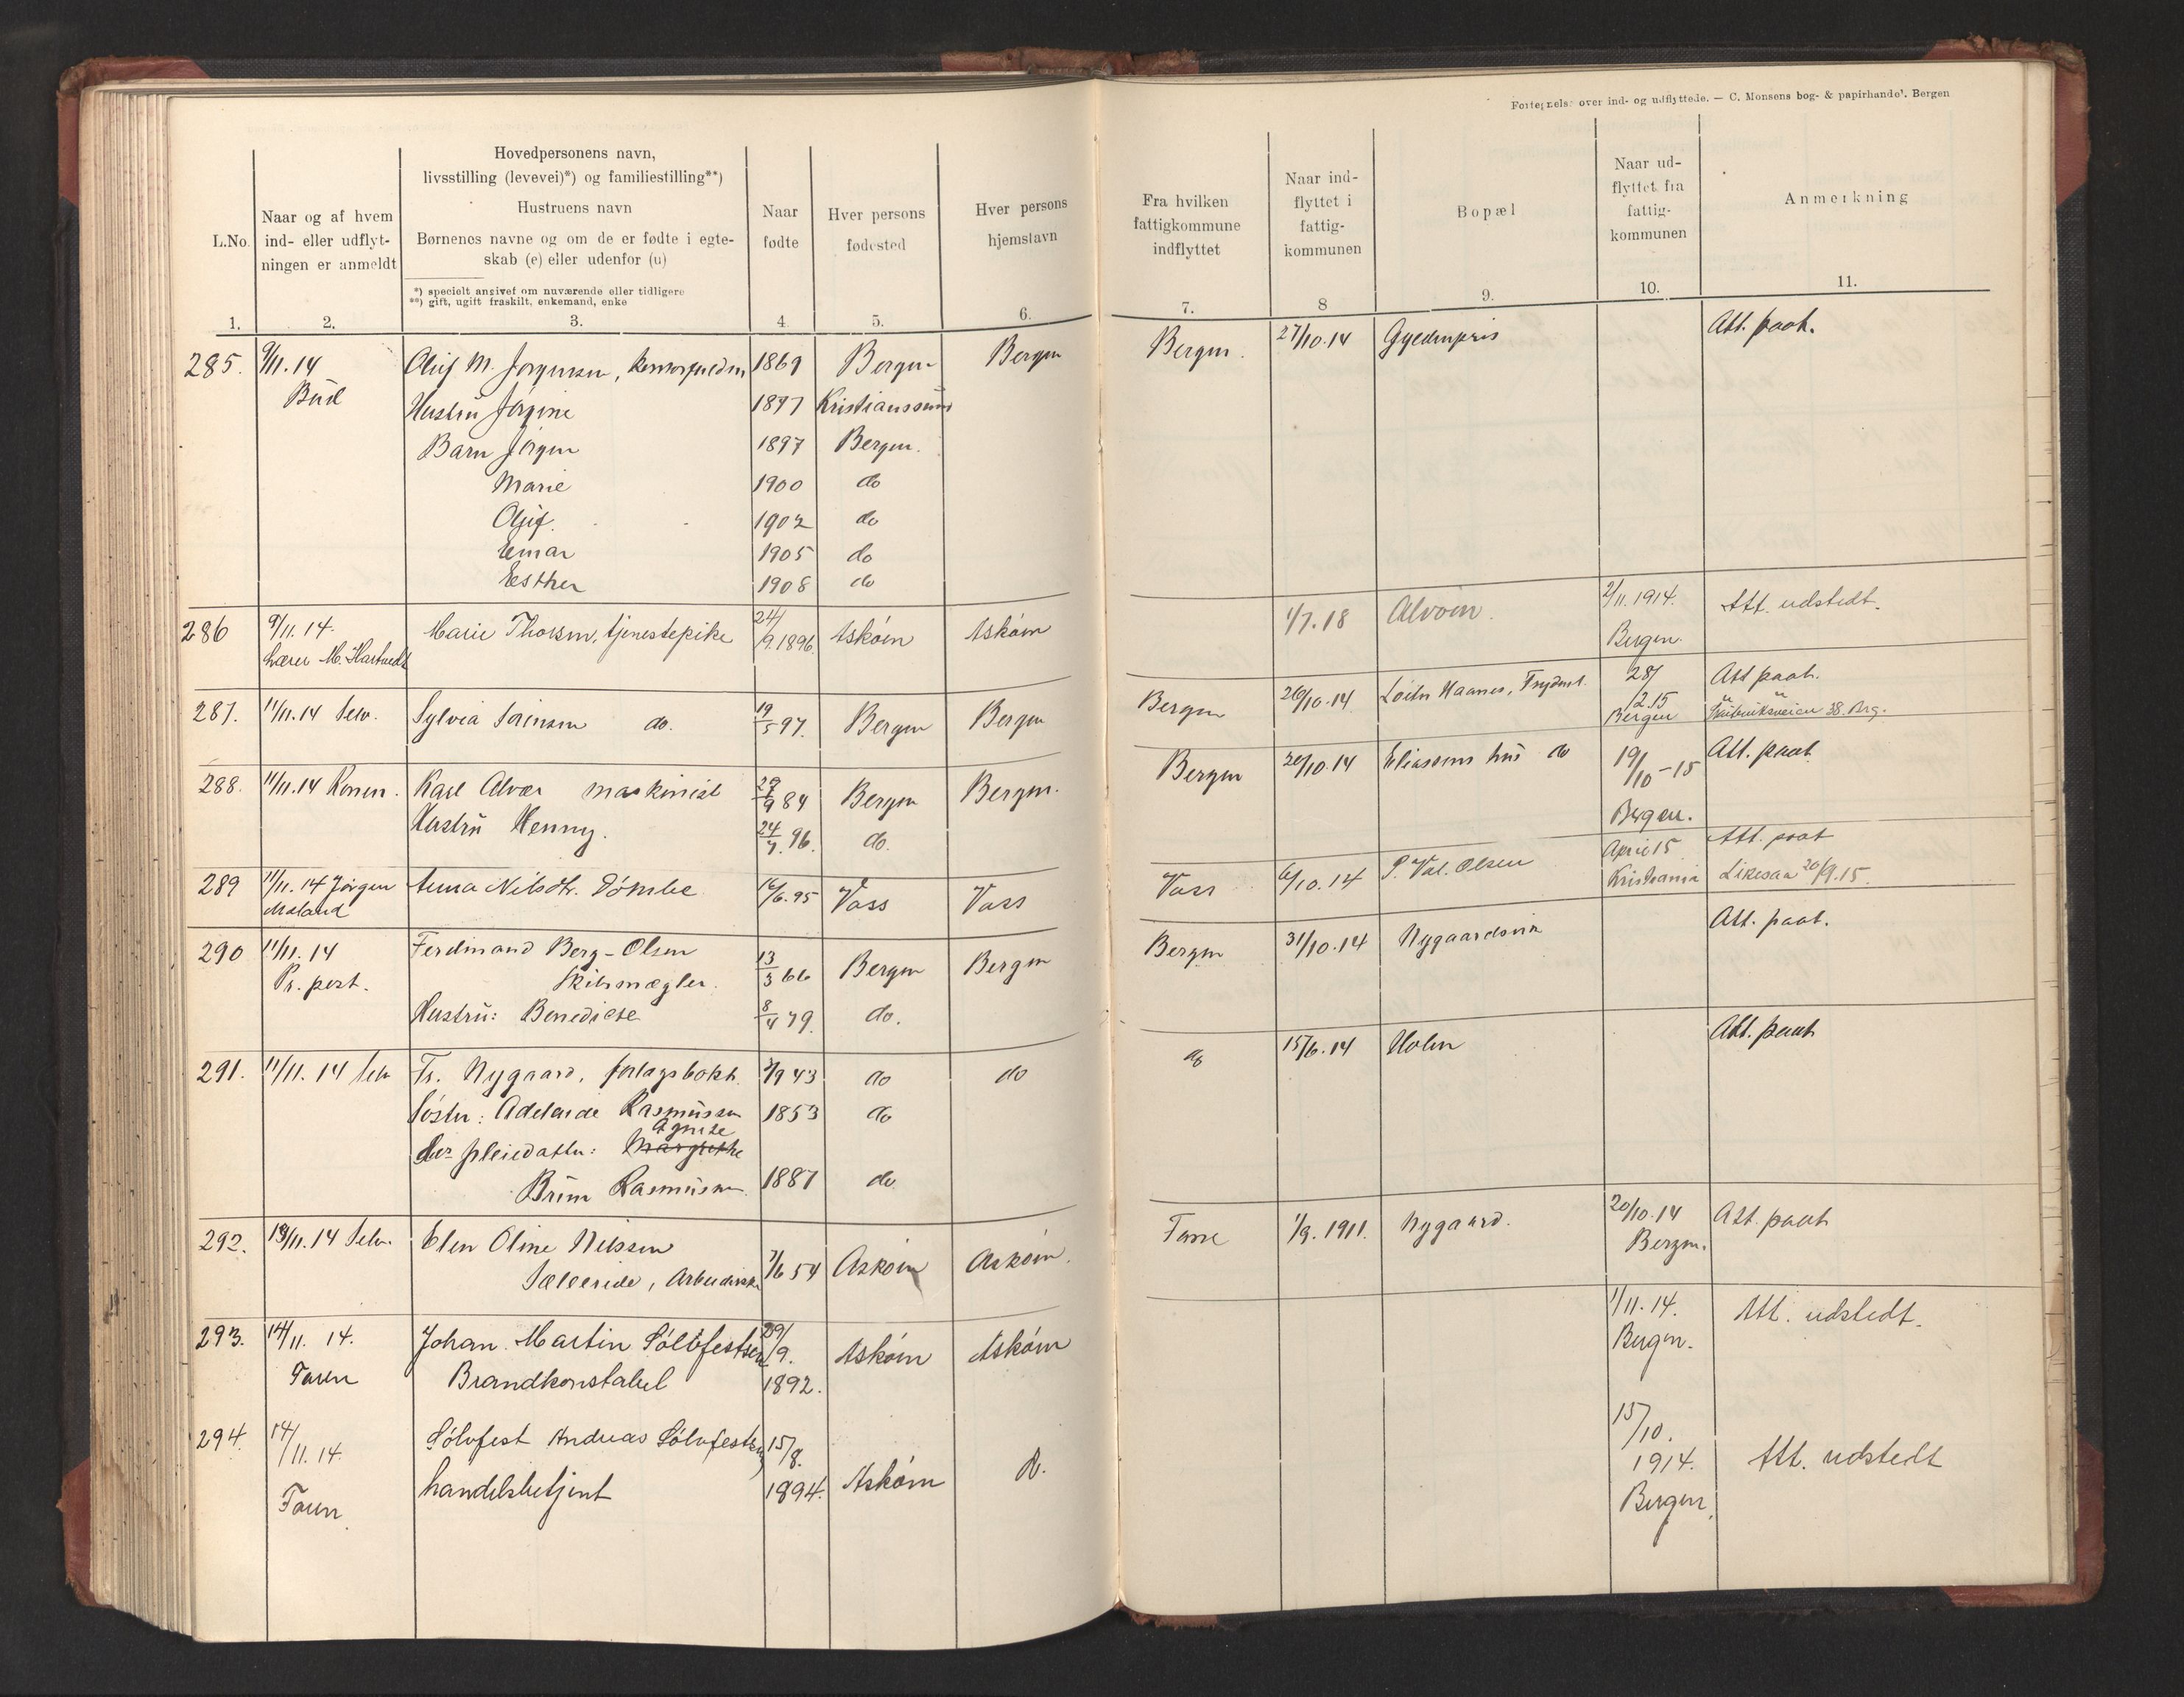 Fortegnelse over ind- og udflyttede. — C. Monsens bog- & papirhandel. Bergen
L.No.
1.
Naar og af hvem
ind- eller udflyt-
ningen er anmeldt
2.
Hovedpersonens navn,
livsstilling (levevei)*) og familiestilling**)
Hustruens navn
Børnenes navne og om de er fødte i egte-
skab (e) eller udenfor (u)
*) specielt angivet om nuværende eller tidligere
**) gift, ugift fraskilt, enkemand, enke
3.
Naar
fødte
4
Hver persons
fødested
5.
Hver persons
hjemstavn
6.
Fra hvilken
fattigkommune
indflyttet
7.
Naar ind-
flyttet i
fattig-
kommunen
8
Bopæl
9.
Naar ud-
flyttet fra
fattig-
kommunen
10.
Anmerkning
11.
285. 9/11.14 Oluf M. Jørgensen, 1869 Bergen Bergen Bergen. 27/10.14 Att. paat.
Bud Hustru Jørgine 1877 Kristianssund
Barn Jørgen 1897 Bergen.
Marie 1900 do
Oluf. 1902 do
Einar 1905 do
Esther 1908 do
286 9/11.14. Marie Thorsen, tjenestepike 24/9.1896. Askøen Askøen 1/7.18 Alvøen. 2/11.1914. Att. udstedt.
Lærer M. Hartvedt Bergen.
287. 11/11.14 Selv. Sylvia Sørensen do. 19/5 97. Bergen Bergen Bergen 26/10.14 Haanes, 28/2.15 Att paat.
Bergen 38. Brg.
288. 11/11.14 Konen. Karl Alvær maskinist 29/9 84 Bergen Bergen. Bergen 20/10.14 Eliassens hus do 19/10-15 Att. paat.
Hustru Henny. 24/7. 96. do. Bergen.
289 11/11.14 Jørgen Anna Nilsdtr. Dømbe 16/6.95 Voss Voss Voss 6/10.14 P. Val. Olsen April 15 Att. paat
Kristiania Likesaa 20/9.15.
290 11/11.14 Ferdinand Berg-Olsen 13/3 66 Bergen Bergen Bergen 31/10.14 Nygaardsvik Att. paat.
Pr. post. Skibsmægler.
Hustru: Benedicte 8/4 79. do.
291. 11/11.14 Selv Fr. Nygaard, forlagsbokh. 7/9 43 do do do 15/6.14 Holen Att. paat
Søster: Adelaide Rasmussen 1853 do
Agnete
pleiedatter: Margrethe
Brun Rasmussen 1887 do
292. 13/11.14 Selv. Elen Oline Nilssen 7/6 54 Askøen Askøen. Fane 1/9.1911. Nygaard. 20/10.14 Att. paat
Sælereide, Bergen.
293. 14/11.14. Johan Martin Sølvfestsen 29/9. Askøen Askøen 1/11.14. Att. udstedt.
Faren Brandkonstabel 1892. Bergen.
294. 14/11.14. Sølvfest Andreas Sølvfestsen 15/8. 15/10.
Faren handelsbetjent 1894. Askøen 1914. Att. udstedt
Bergen.